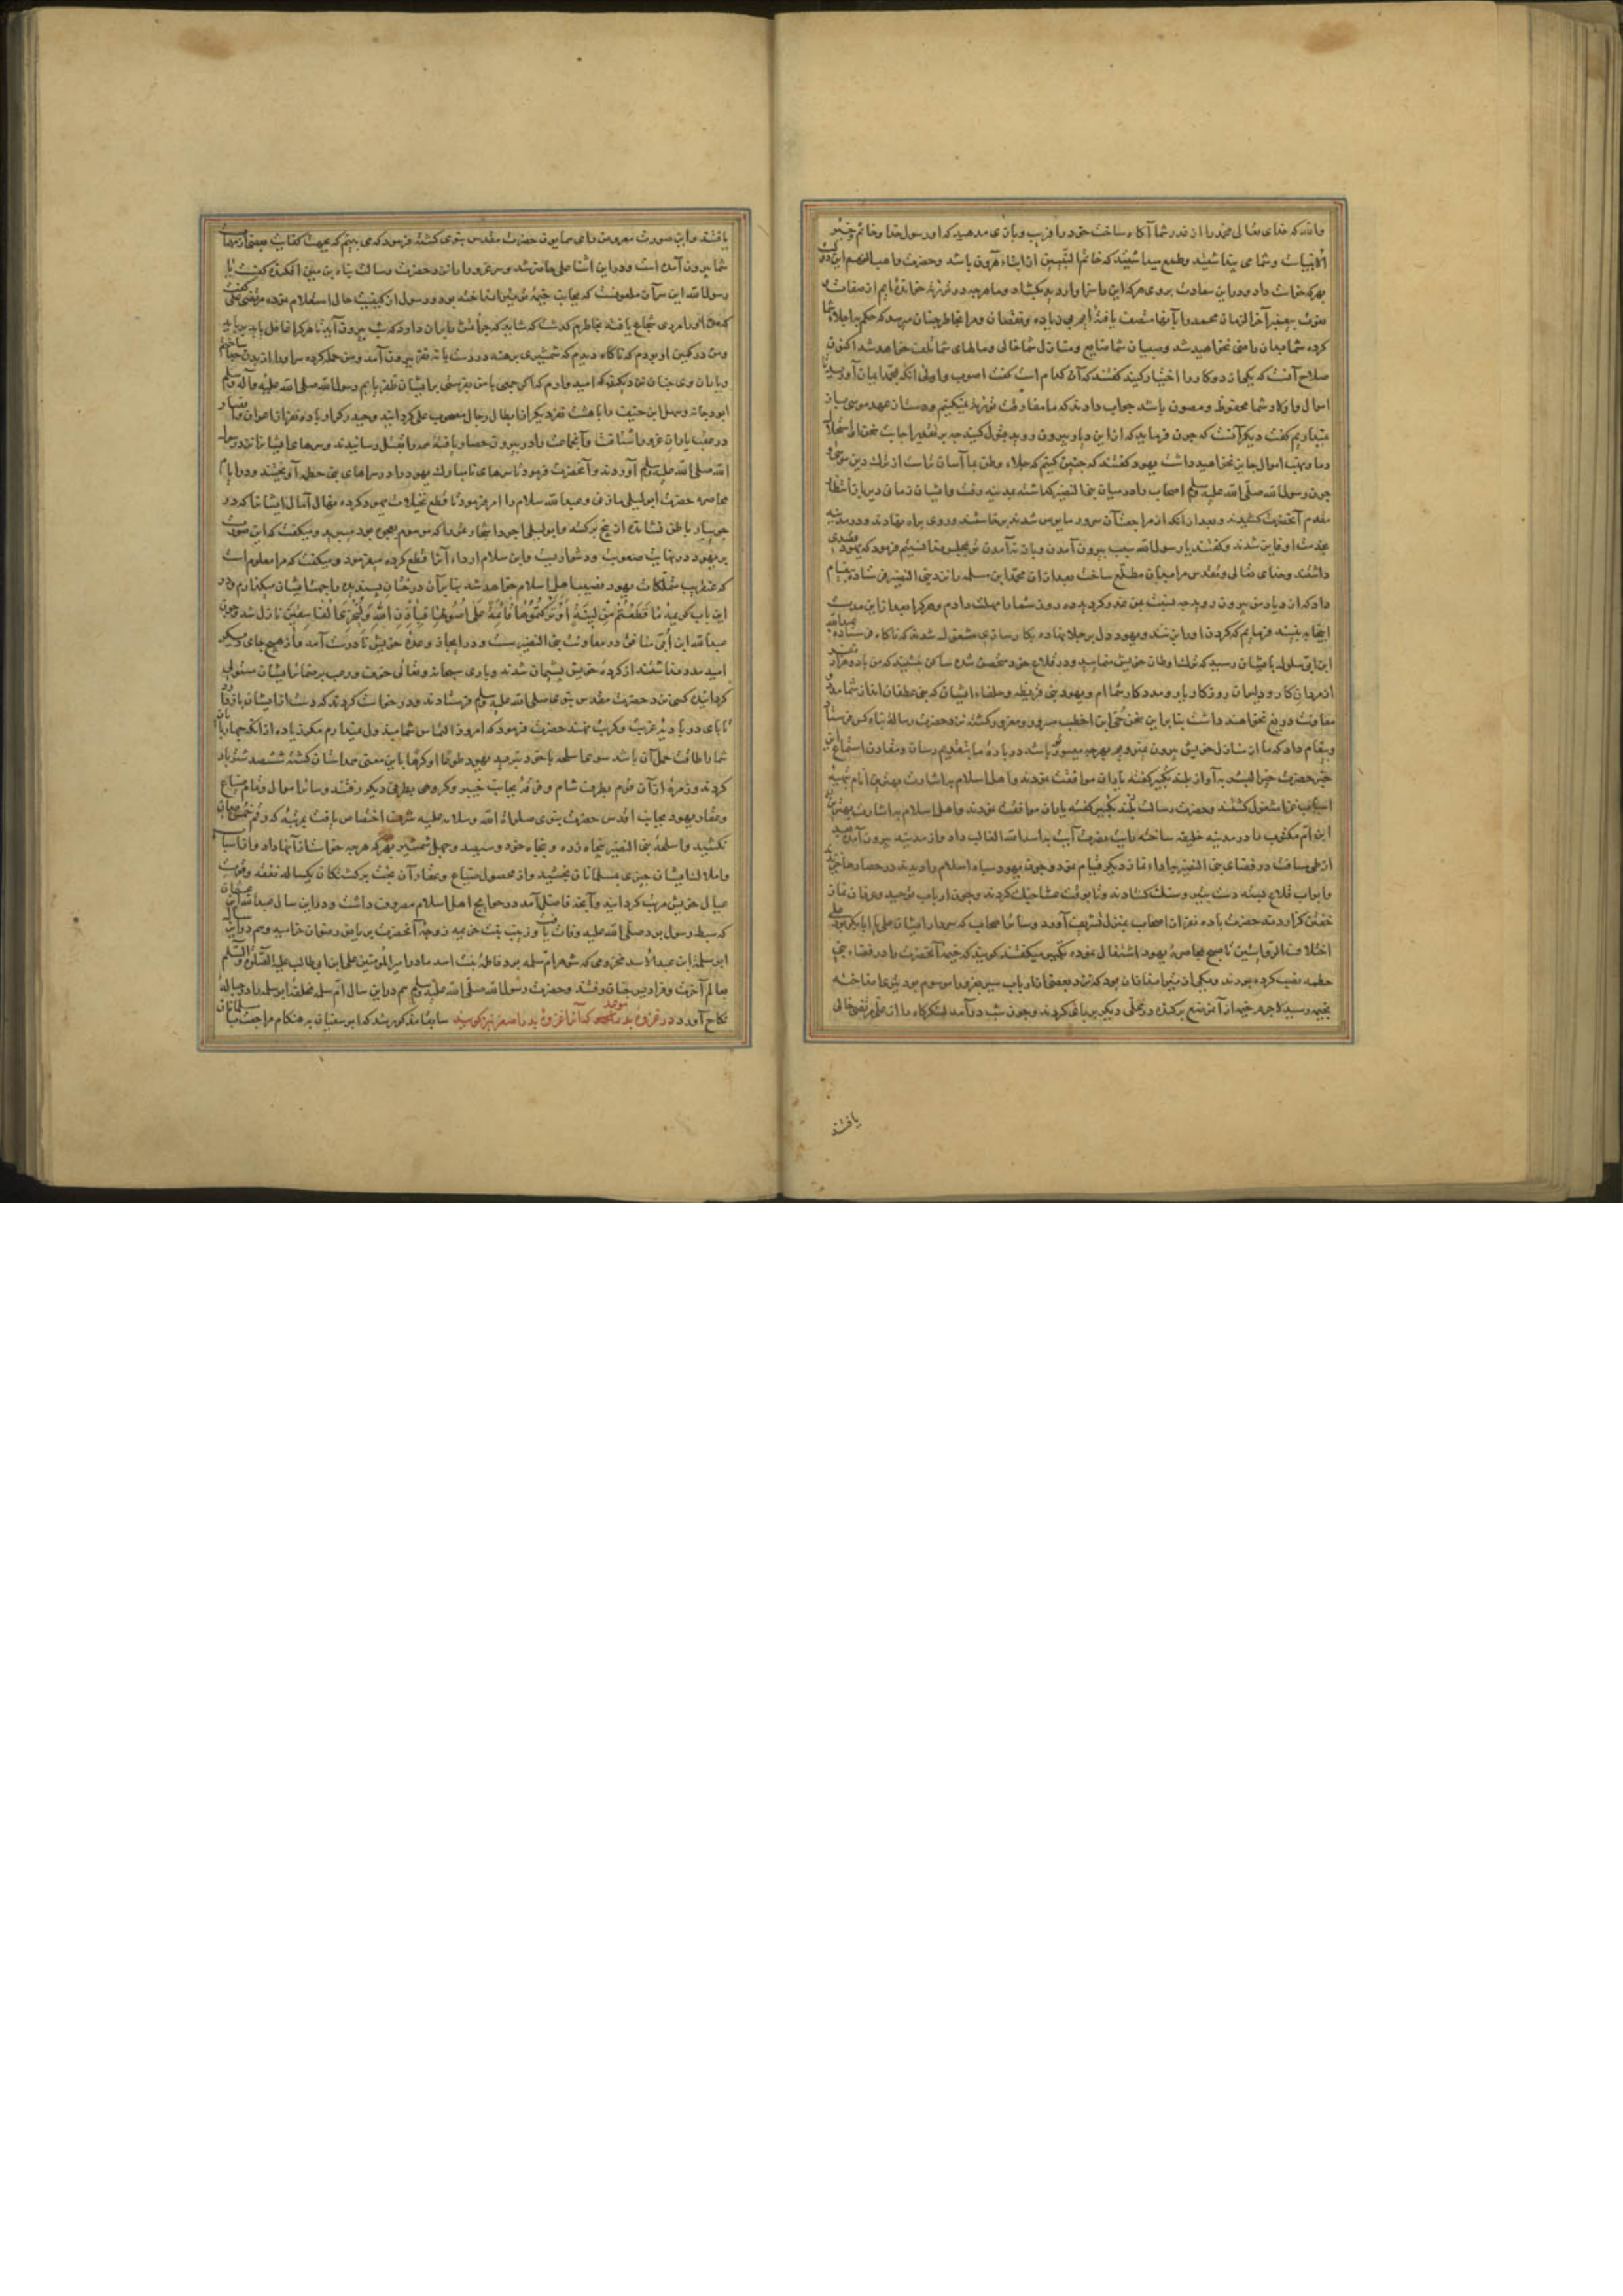 والله که خدای تعالی محمد را از غدر شما آگاه ساخت خود را فریب و بازی مدهید که او رسول خدا و خاتم
الانبیاست و شما می‌پنداشتید و طمع میداشتید که خاتم النبیین از ابناء هرون باشد و حضرت واهب النعم این دولت
بهر که خواست داد و در این سعادت بروی هر که این را سزاوار دید بکشاد و ما هرچه در توریة خوانده‌ایم از صفات
نعوت پیغمبر آخرالزمان محمد را بآنها متصف یافته‌ایم بی زیاده و نقصان و مرا بخاطر چنان میرسد که حکم باجلاء شما
کرده شما بدان راضی نخواهید شد و صبیان شما ضایع و منازل شما خالی و مالهای شما تلف خواهد شد اکنون
صلاح آنست که یکی از دو کار را اختیار کنید گفتند که آن کدام است گفت اصوب و اولی آنکه بمحمد ایمان آورید تا
اموال و اولاد شما محفوظ و مصون باشد جواب دادند که ما مفارقت توریة نمیکنیم و دست از عهد موسی باز
نمیداریم گفت دیگر آنست که چون فرماید که از این دیار بیرون روید قبول کنید
یهود گفتند که چنین کنیم که جلاء وطن بما آسان‌تر است از ترک دین موسی
چون رسول الله صلی الله علیه وسلم اصحاب را در میان بنی النضیر گذاشته بمدینه رفت و ایشان زمان دیر باز انتظار
مقدم آنحضرت کشیدند و بعد از آنکه از مراجعت آن سرور مأیوس شدند برخاستند و روی براه نهادند و در مدینه
بخدمت او فایز شدند و گفتند یا رسول الله سبب بیرون آمدن و باز نیامدن تو بمجلس ما فرمود که یهود قصدی
داشتند و خدای تعالی و تقدس مرا بدان مطلع ساخت بعد از آن محمد ابن مسلمه را نزد بنی النضیر فرستاده پیغام
داد که از دیار من بیرون روید چه نسبت بمن غدر کردید ده روز شما را مهلت دادم و هر که را بعد از این مدت
اینجا ببینند فرمایم که گردن او را بزنند و یهود دل بر جلا نهاده بکارسازی مشغول شدند که ناگاه فرستاده عبدالله
ابن ابی سلول بایشان رسید که ترک اوطان خویش منمایید و در قلاع خود متحصن شده ساکن بنشینید که من با دو هزار
از مردان کار و دلیران روزگار یار و مددکار شما ام و یهود بنی قریظه و حلفاء ایشان که بنی غطفان‌اند از شما مدد و
معاونت دریغ نخواهند داشت بنا بر این سخن حیی ابن اخطب مسرور و مغرور گشته نزد حضرت رسالت پناه کس فرستاد
و پیغام داد که ما از منازل خویش بیرون نمیرویم هرچه میسور باشد در باره ما بتقدیم رسان
حضرت خیر البشر بآواز بلند تکبیر گفته یاران موافقت نمودند و اهل اسلام باشارت بهترین انام بتهیه
اسباب غزا مشغول گشتند و حضرت رسالت بلند تکبیر گفته یاران موافقت نمودند و اهل اسلام باشارت بهترین
ابن ام مکتوم را در مدینه خلیفه ساخته رایت نصرت آیت به اسدالله الغالب داد و از مدینه بیرون آمد
از طی مسافت در فضای بنی النضیر بادای نماز دیگر قیام نمود و چون یهود سپاه اسلام را دیدند در حصارها خزیده
و ابواب قلاع بسته دست بتیر و سنگ گشادند و تا بوقت عشا جنگ کردند و چون ارباب توحید و عرفان نماز
خفتن گزاردند حضرت با ده نفر از اصحاب بمنزل تشریف آورد و سائر اصحاب که سردار ایشان علی یا ابابکر بود علی
اختلاف الروایتین تا صبح بمحاصره یهود اشتغال نموده تکبیر میگفتند گویند که خیمه آنحضرت را در فضاء بنی
حطمه نصب کرده بودند و یکی از تیراندازان یهود که
بخیمه رسید لاجرم خیمه از آن موضع برکنده در محلی دیگر برپای کردند و چون شب درآمد لشکرگاه را از علی مرتضی خالی
یافتند
یافتند و این صورت معروض رای همایون حضرت مقدس نبوی گشته فرمود که می‌بینم که بجهت کفایت بعضی از مهمات
شما بیرون آمده است و در این اثنا علی حاضر شد و سر غرور را در نزد حضرت رسالت پناه بر زمین افکنده گفت یا
رسول الله این سر آن ملعونست که بجانب خیمه تو تیر انداخته بود و رسول از کیفیت حال استعلام نموده مرتضی علی گفت
که من او را مردی شجاع یافته بخاطرم گذشت که شاید که جرأت بر آن دارد که شب بیرون آید تا هر کرا غافل یابد برباید
و من در کمین او بودم که ناگاه دیدم که شمشیری برهنه در دست با نه نفر بیرون آمد و من حمله کرده سر او را از بدن جدا ساختم
و یاران وی چنان نزدیکند که امید دارم که اگر جمعی با من بفرستی بر ایشان ظفر یابم رسول الله صلی الله علیه وآله وسلم
ابودجانه و سهل ابن حنیف را با هشت نفر دیگر از ابطال رجال مصحوب علی گردانید و حیدر کرار با ده نفر از اعوان و انصار
در عقب یاران غرور شتافت و آنجماعت را در بیرون حصار یافته همه را بقتل رسانیدند و سرهای ایشان را نزد رسول
الله صلی الله علیه وسلم آوردند و آنحضرت فرمود تا سرهای نامبارک یهود را در سراهای بنی حطمه آویختند و در ایام
محاصره حضرت ابولیلی مازنی و عبدالله سلام را امر فرمود تا قطع نخیلات یهود کرده نهال آمال ایشان را که در
جویبار باطن نشانده از بیخ برکنند و ابولیلی اجود اشجار خرما را که موسوم بعجوه بود میبرید و میگفت که این صورت
بر یهود در نهایت صعوبت و دشواریست و ابن سلام ارداء آنرا قطع کرده میفرمود و میگفت که مرا معلوم است
که عنقریب متملکات یهود نصیب اهل اسلام خواهد شد بنا بر آن درختان پسندیده را جهت ایشان میگذارم و در
این باب کریمه مَا قَطَعْتُمْ مِنْ لِينَةٍ أَوْ تَرَكْتُمُوهَا قَائِمَةً عَلَىٰ أُصُولِهَا فَبِإِذْنِ اللَّهِ وَلِيُخْزِيَ الْفَاسِقِينَ نازل شد و چون
عبدالله ابن ابی منافق در معاونت بنی النضیر سست و در ایجاز وعده خویش نادرست آمد و از هیچ جای دیگر
امید مدد نداشتند از کرده خویش پشیمان شدند و باری سبحانه وتعالی خوف و رعب بر ضمائر ایشان مستولی
گردانیده کسی نزد حضرت مقدس نبوی صلی الله علیه وسلم فرستادند و درخواست کردند که دست از ایشان باز دارد
تا پای در بادیه غربت و کربت نهند حضرت فرمود که امروز التماس شما مبذول نمیدارم مگر
شما را طاقت حمل آن باشد سوی اسلحه با خود ببرید یهود طوعا او کرها باین معنی همداستان گشته ششصد شتر بار
کردند و زمره از آن قوم بطرف شام و فرقه بجانب خیبر و گروهی بطرفی دیگر رفتند و سائر اموال و تمام ضیاع
و عقار یهود بجناب اقدس حضرت نبوی صلوات الله وسلامه علیه شرف اختصاص یافت بمرتبه که رقم خمس بر آن
نکشید و اسلحه بنی النضیر پنجاه زره و پنجاه خود و سیصد و چهل شمشیر بهر که هرچه خواست از آنها داد و از اسباب
و املاک ایشان چیزی بمسلمانان بخشید و از محصول ضیاع و عقار آن نخست برکشتگان یکساله نفقه و قوت
عیال خویش مرتب گردانید و آنچه فاضل آمد در حوایج اهل اسلام مصروف داشت و در این سال عبدالله ابن عثمان
که سبط رسول بود صلی الله علیه وفات یافت و زینب بنت خزیمه زوجه آنحضرت بریاض رضوان خرامید و هم در این سال
ابن سلمه ابن عبدالاسد مخزومی که شوهر ام سلمه بود و فاطمه بنت اسد مادر امیرالمؤمنین علی ابن ابیطالب علیه الصلوة والسلم
بعالم آخرت و فرادیس جنان رفتند و حضرت رسول الله صلی الله علیه وسلم هم در این سال ام سلمه مخلفه ابوسلمه را در حباله
نکاح آورد در غزوه بدر موعد که آنرا غزوه بدر اصغر نیز گویند سابقا مذکور شد که ابوسفیان بهنگام مراجعت با مسلمانان